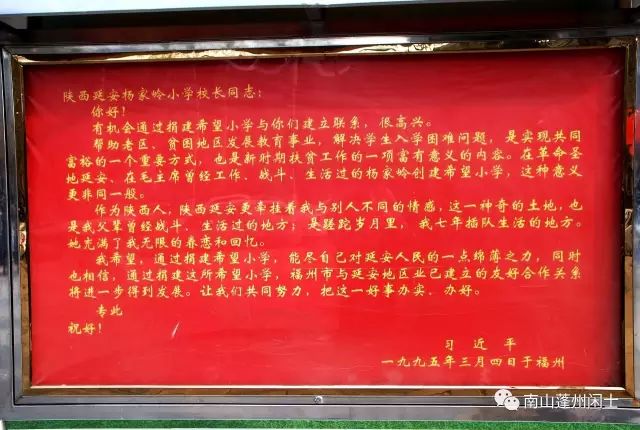 陕西延安杨家岭小学校长同志：
你好！
有机会通过捐建希望小学与你们建立联系，很高兴。
帮助老区、贫困地区发展教育事业，解决学生入学困难问题，是实现共同
富裕的一个重要方式，也是新时期扶贫工作的一项富有意义的内容。在革命圣
地延安、在毛主席曾经工作、战斗、生活过的杨家岭创建希望小学，这种意义
更非同一般。
作为陕西人，陕西延安更牵挂着我与别人不同的情感，这一神奇的土地，也
是我父辈曾经战斗、生活过的地方；是蹉跎岁月里，我七年插队生活的地方。
她充满了我无限的眷恋和回忆。
我希望，通过捐建希望小学，能尽自己对延安人民的一点绵薄之力，同时
也相信，通过捐建这所希望小学，福州市与延安地区业已建立的友好合作关系
将进一步得到发展。让我们共同努力，把这一好事办实、办好。
专此
祝好！
习近平
一九九五年三月四日于福州
南山蓬州闲士